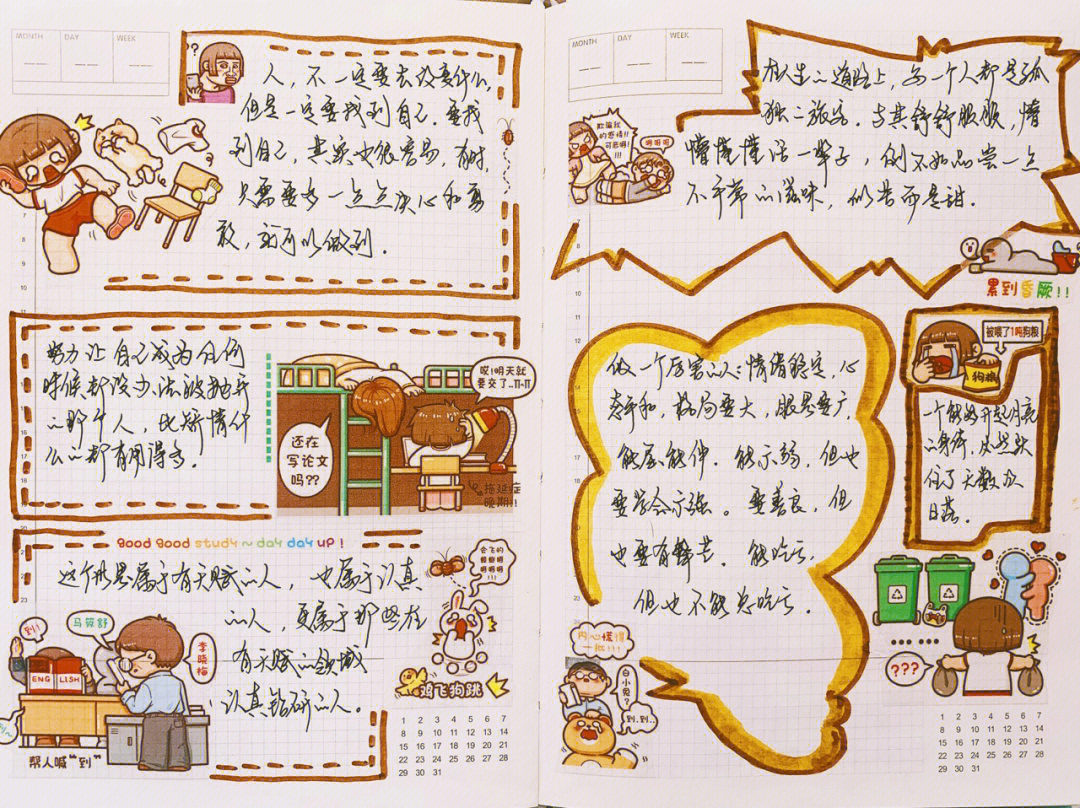 MONTH DAY WEEK
??
人，不一定要去改变什么，
但是一定要找到自己。要找
到自己，其实也很容易，有时，
只需要多一点点决心和勇
敢，就可以做到。
努力让自己成为任何
时候都没办法被抛弃
的那个人，比矫情什
么的都有用得多。
哎!明天就
要交了..π-π
还在
写论文
吗??
拖延症
晚期!!
good good study ~ day day up !
这个世界属于有天赋的人，也属于认真
的人，更属于那些在
有天赋的领域
认真钻研的人。
到!
马筱舒
李晓梅
ENG LISH
帮人喊“到”
会飞的
鸡飞狗跳
1 2 3 4 5 6 7
8 9 10 11 12 13 14
15 16 17 18 19 20 21
22 23 24 25 26 27 28
29 30 31
MONTH DAY WEEK
在人生的道路上，每一个人都是孤
独的旅客。与其舒舒服服，懵
懵懂懂活一辈子，倒不如品尝一点
不平常的滋味，似苦而是甜。
欺骗我
的感情!!
可恶啊!
!!!
啊啊啊
累到昏厥!!
做一个厉害的人：情绪稳定，心
态平和，格局要大，眼界要广，
能屈能伸。能示弱，但也
要学会示强。要善良，但
也要有锋芒。能吃亏，
但也不能总吃亏。
被喂了1吨狗粮
狗粮
一个能歼开起月亮
的身体，必然夹
住了无数次
日落。
内心慌得
一批!!!
白小兔?
到.到..
???
1 2 3 4 5 6 7
8 9 10 11 12 13 14
15 16 17 18 19 20 21
22 23 24 25 26 27 28
29 30 31